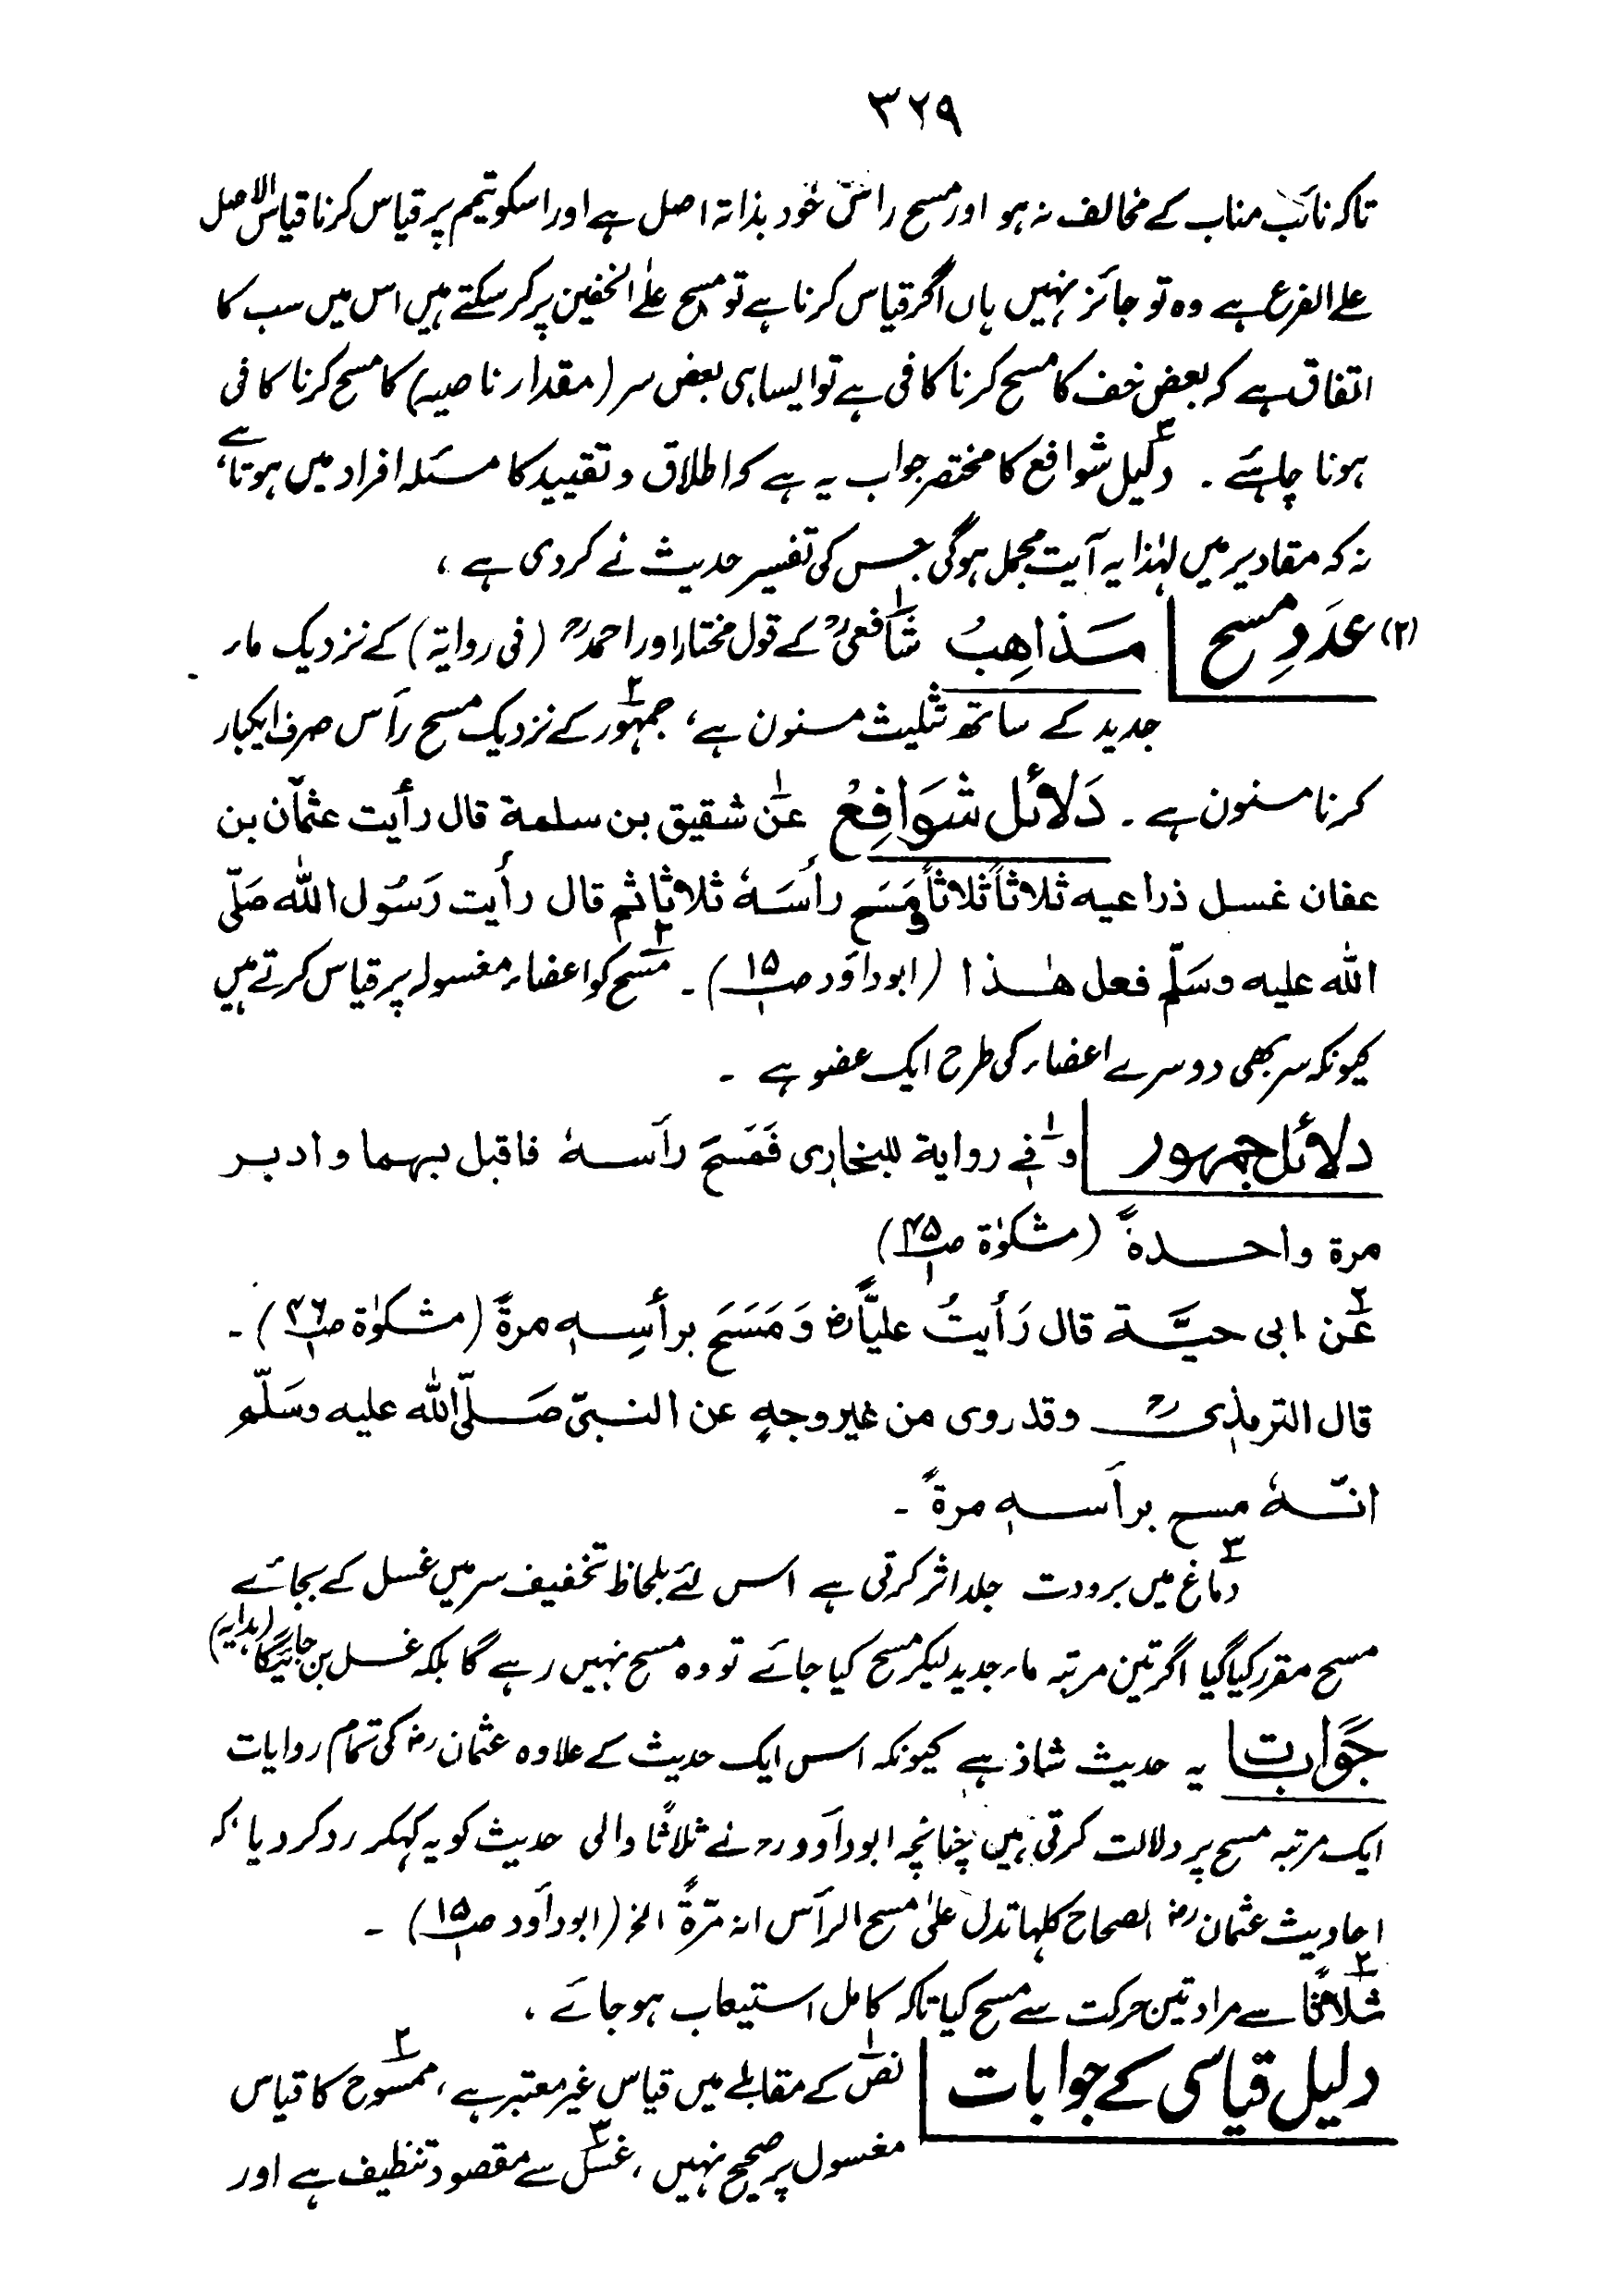 ۳۲۹
تاکہ نائب مناب کے مخالف نہ ہو اور مسح راس خود بذاتہ اصل ہے اور اسکو تیمم پر قیاس کرنا قیاس الاصل
علے الفرع ہے وہ تو جائز نہیں ہاں اگر قیاس کرنا ہے تو مسح علےٰ الخفین پر کر سکتے ہیں اس میں سب کا
اتفاق ہے کہ بعض خف کا مسح کرنا کافی ہے تو ایسا ہی بعض سر (مقدار ناصیہ) کا مسح کرنا کافی
ہونا چاہئے ۔ ۳ دلیل شوافع کا مختصر جواب یہ ہے کہ اطلاق و تقیید کا مسئلہ افراد میں ہوتا ہے،
نہ کہ مقادیر میں لہٰذا یہ آیت مجمل ہوگی جس کی تفسیر حدیث نے کردی ہے ،
(۲) عدَدِ مسح مَذاھِبُ ۱ شافعیؒ کے قول مختار اور احمدؒ (فی روایۃ) کے نزدیک ماء
جدید کے ساتھ تثلیث مسنون ہے، ۲ جمہور کے نزدیک مسح رأس صرف ایکبار
کرنا مسنون ہے ۔ دَلائل شَوَافِعُ ۱ عن شقیق بن سلمة قال رأیت عثمان بن
عفان غسل ذراعیه ثلاثاً ثلاثاً وَمَسَح رأسَهٗ ثلاثا ثم قال رأیت رَسُول اللّٰه صَلّی
اللّٰه علیه وسَلّم فعل هٰذا (ابوداؤد ص ۱۵/۱) ۔ ۲ مسح کو اعضاء مغسولہ پر قیاس کرتے ہیں
کیونکہ سر بھی دوسرے اعضاء کی طرح ایک عضو ہے ۔
دلائل جمہور ۱ وفے روایة للبخاری فَمَسَحَ رأسهٗ فاقبل بهما و ادبر
مرة واحدةً (مشکوٰۃ ص ۴۵/۱)
۲ عَن ابی حیَّة قال رَأیتُ علیًّا رض وَمَسَحَ برأسِهٖ مرةً (مشکوٰۃ ص ۴۶/۱) ۔
قال الترمذیؒ وقد روی من غیر وجهٍ عن النبیّ صَلّی اللّٰه علیه وسَلّم
انّهٗ مسح برأسهٖ مرةً ۔
۳ دماغ میں برودت جلد اثر کرتی ہے اس لئے بلحاظ تخفیف سر میں غسل کے بجائے
مسح مقرر کیا گیا اگر تین مرتبہ ماء جدید لیکر مسح کیا جائے تو وہ مسح نہیں رہے گا بلکہ غسل بن جائیگا (ہدایہ)
جَوابات یہ حدیث شاذ ہے کیونکہ اس ایک حدیث کے علاوہ عثمان رض کی تمام روایات
ایک مرتبہ مسح پر دلالت کرتی ہیں چنانچہ ابوداؤد رح نے ثلاثًا والی حدیث کو یہ کہکر رد کردیا کہ
احادیث عثمان رض الصحاح کلہا تدل علیٰ مسح الرأس انہ مرّۃً الخ (ابوداؤد ص ۱۵/۱) ۔
۲ ثلاثًا سے مراد تین حرکت سے مسح کیا تاکہ کامل استیعاب ہو جائے ،
دلیل قیاسی کے جوابات ۱ نص کے مقابلے میں قیاس غیر معتبر ہے، ۲ ممسوح کا قیاس
مغسول پر صحیح نہیں ، ۳ غسل سے مقصود تنظیف ہے اور